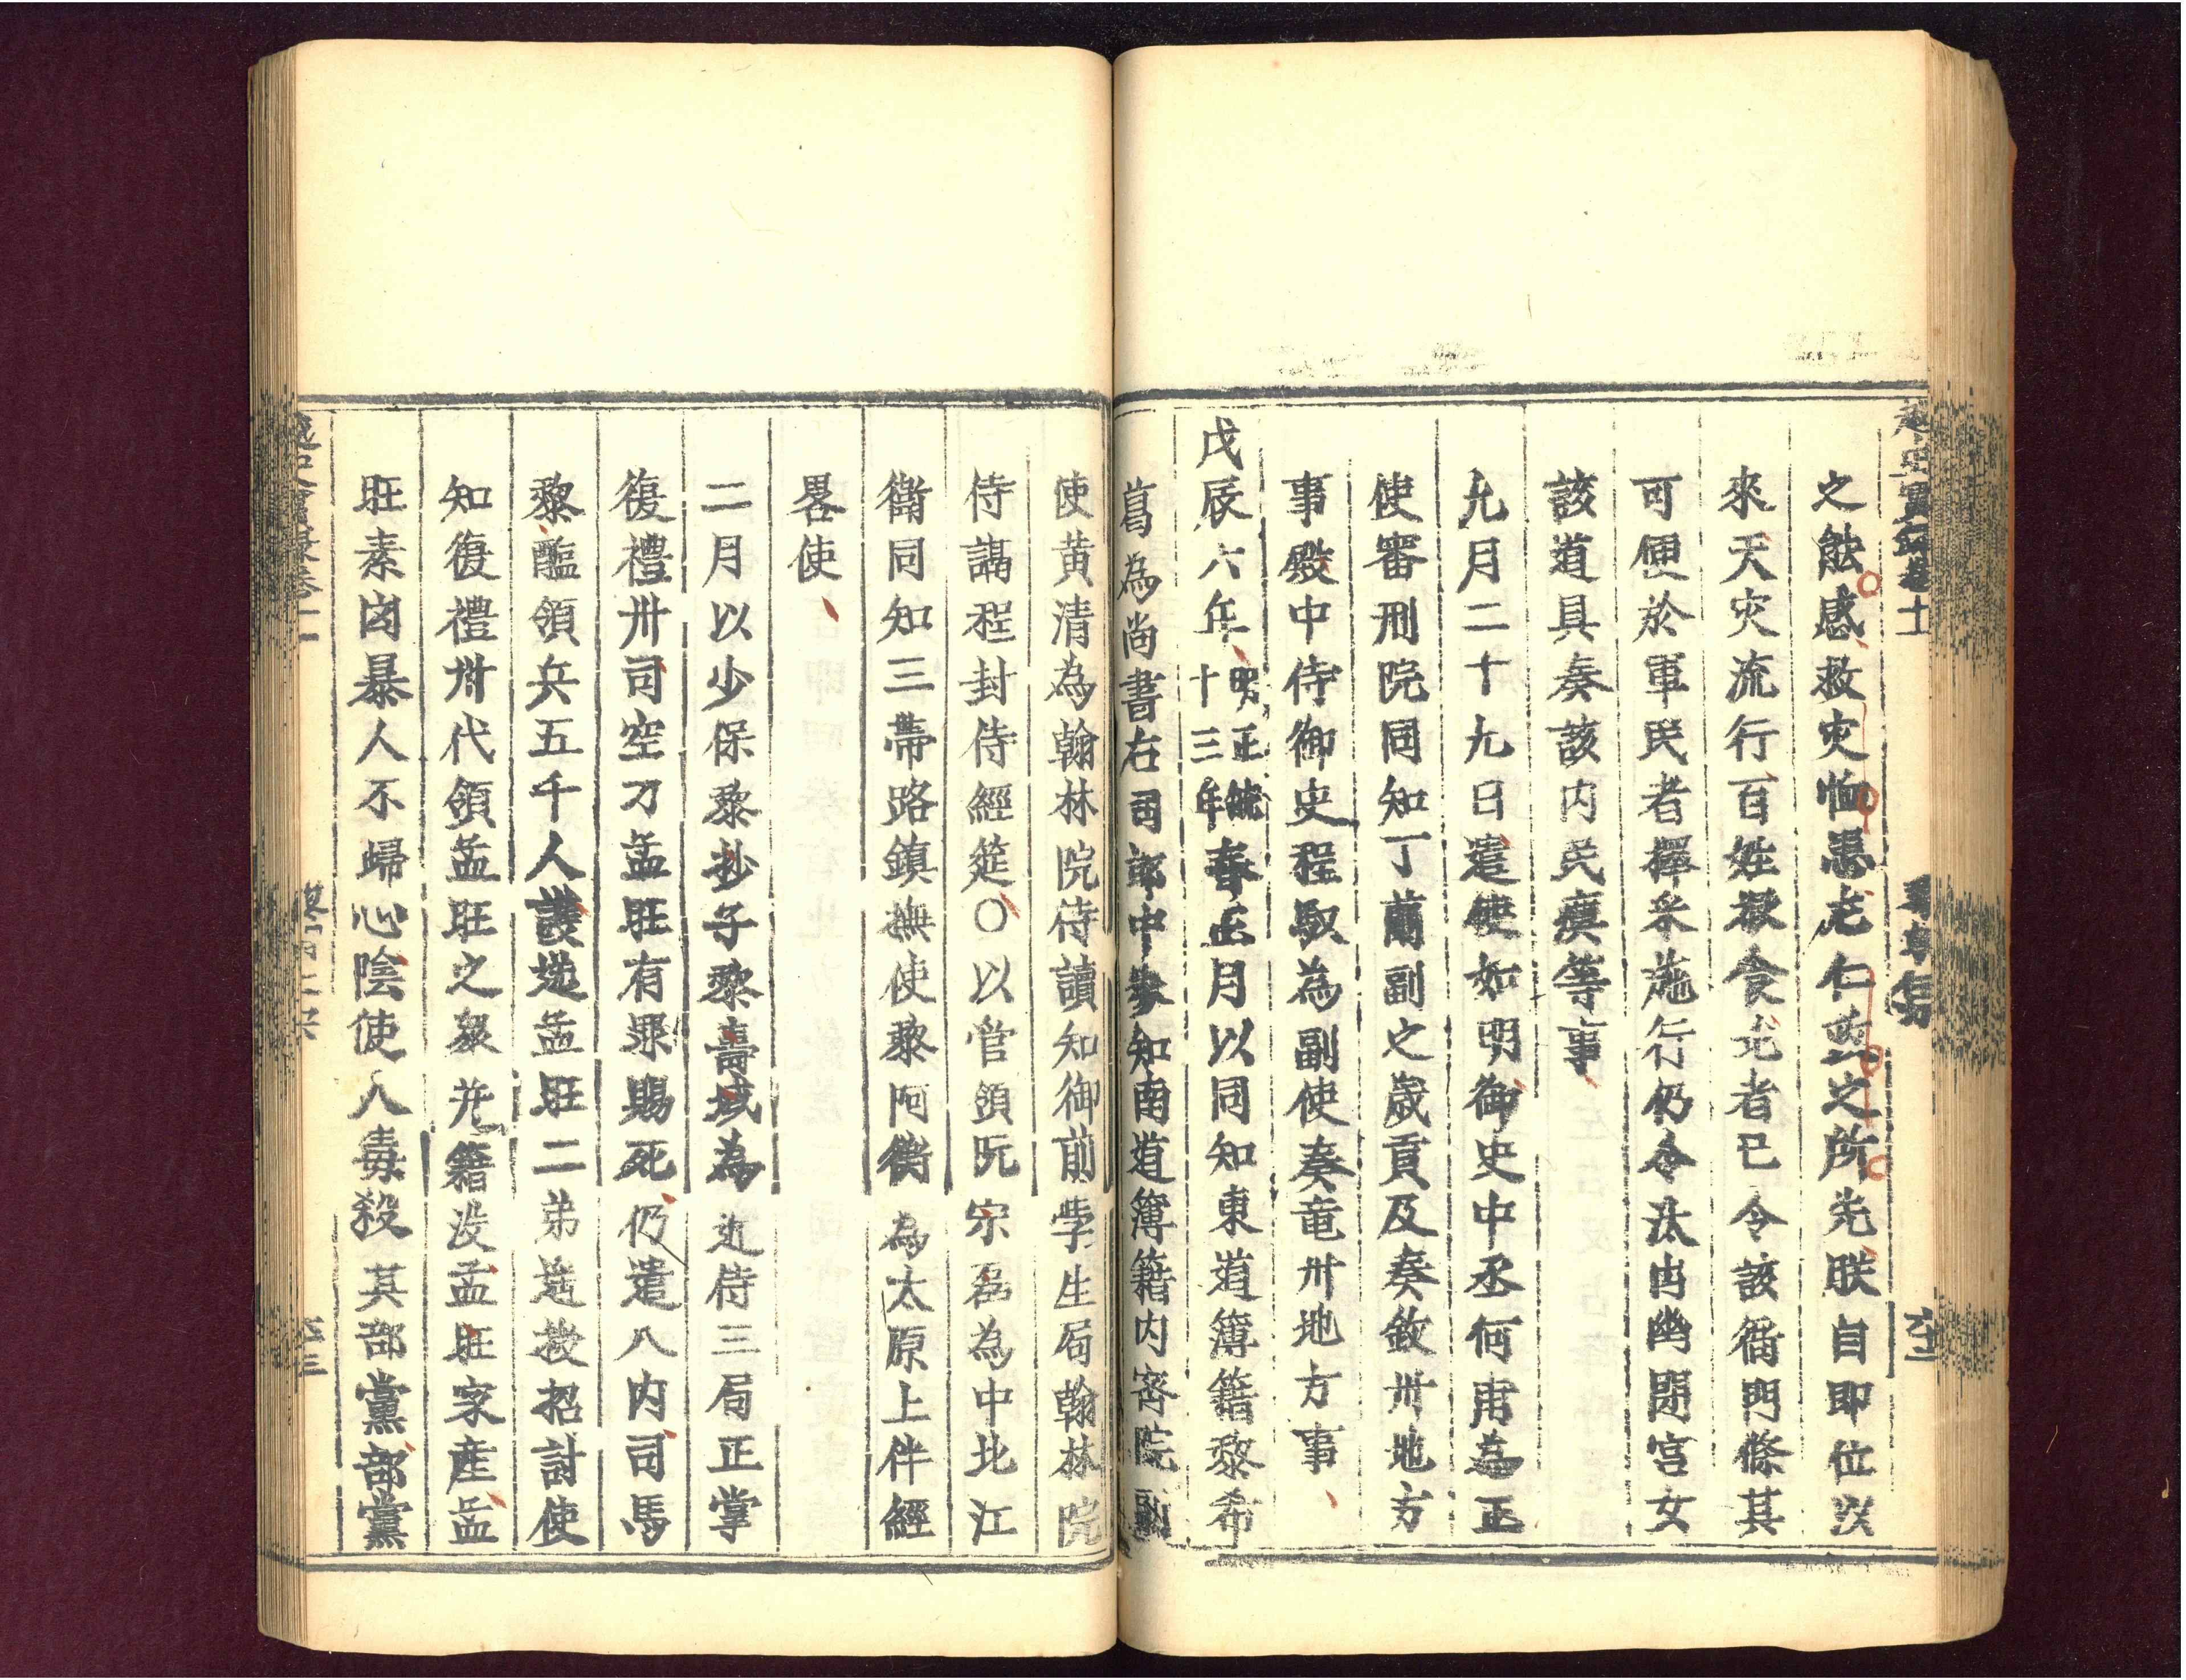 之蝕感救灾恤患尤仁政之所先朕自即位以
來天灾流行百姓艱食尤者已令該衙門條其
可便於軍民者擇采施行仍令汰出幽閉宮女
該道具奏該内民瘼等事
九月二十九日遣使如明御史中丞何甫為正
使審刑院同知丁蘭副之歲貢及奏欽州地方
事殿中侍御史程馭為副使奏竜州地方事
戊辰六年明正統十三年春正月以同知東道簿籍黎希
葛為尚書右司郎中參知南道簿籍内密院副
使黄清為翰林院侍讀知御前學生局翰林院
侍講程封侍經筵○以管領阮宗磊為中北江
衞同知三帶路鎮撫使黎阿衡為太原上伴經
畧使
二月以少保黎抄子黎壽域為近侍三局正掌
復禮州司空刀孟旺有罪賜死仍遣入内司馬
黎醢領兵五千人護送孟旺二弟遥授招討使
知復禮州代領孟旺之衆并籍没孟旺家産孟
旺素凶暴人不歸心陰使人毒殺其部黨部黨